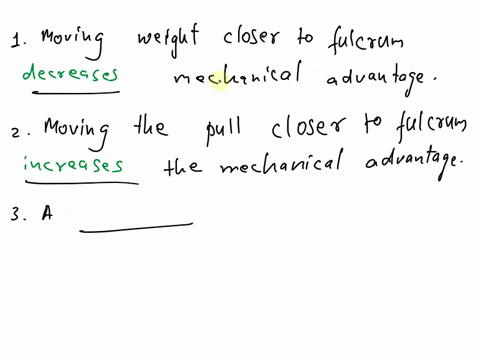 1. Moving weight closer to fulcrum
decreases mechanical advantage.
2. Moving the pull closer to fulcrum
increases the mechanical advantage.
3. A